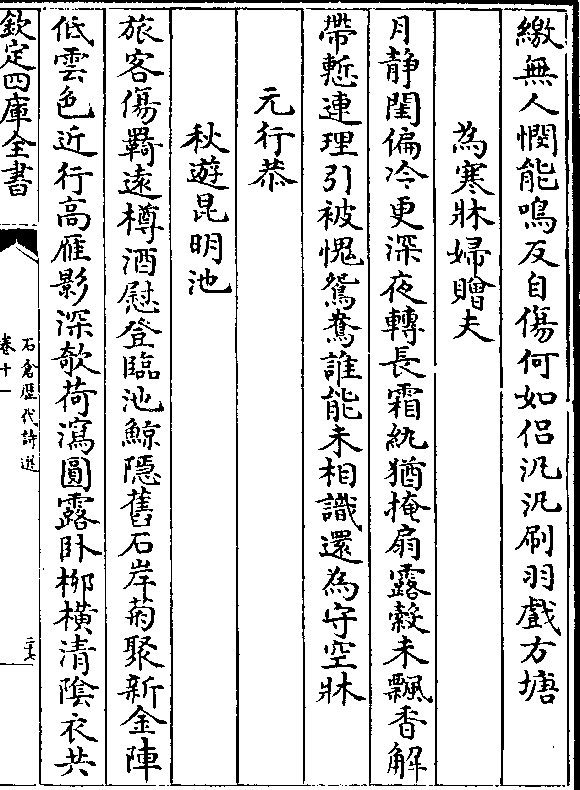 繳無人憫能鳴反自傷何如侣汎汎刷羽戲方塘
為寒牀婦贈夫
月静閨偏冷更深夜轉長霜紈猶掩扇露縠未飄香解
帶慙連理引被愧鴛鴦誰能未相識還為守空牀
元行恭
秋遊昆明池
旅客傷羇遠樽酒慰登臨池鯨隱舊石岸菊聚新金陣
低雲色近行高雁影深欹荷瀉圓露卧栁横清陰衣共
欽定四庫全書
石倉歴代詩選
卷十一
二十七